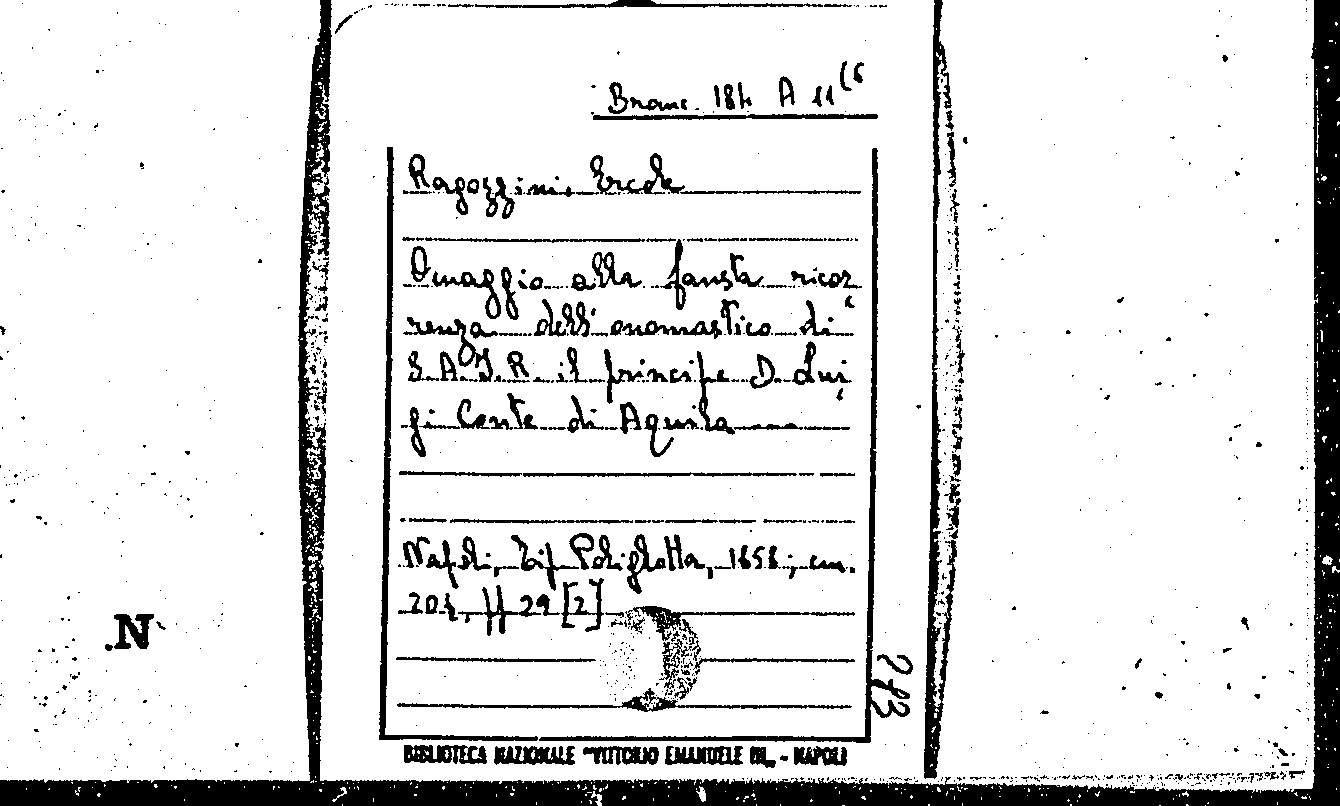 Branc. 184 A 11(6
Ragozzini, Ercole
Omaggio alla fausta ricor
renza dell'onomastico di
S.A.I.R. il principe D. Lui
gi Conte di Aquila ....
Napoli, Tip. Poliglotta, 1858; cm.
pp 29 [2]
N
BIBLIOTECA NAZIONALE "VITTORIO EMANUELE III„ - NAPOLI